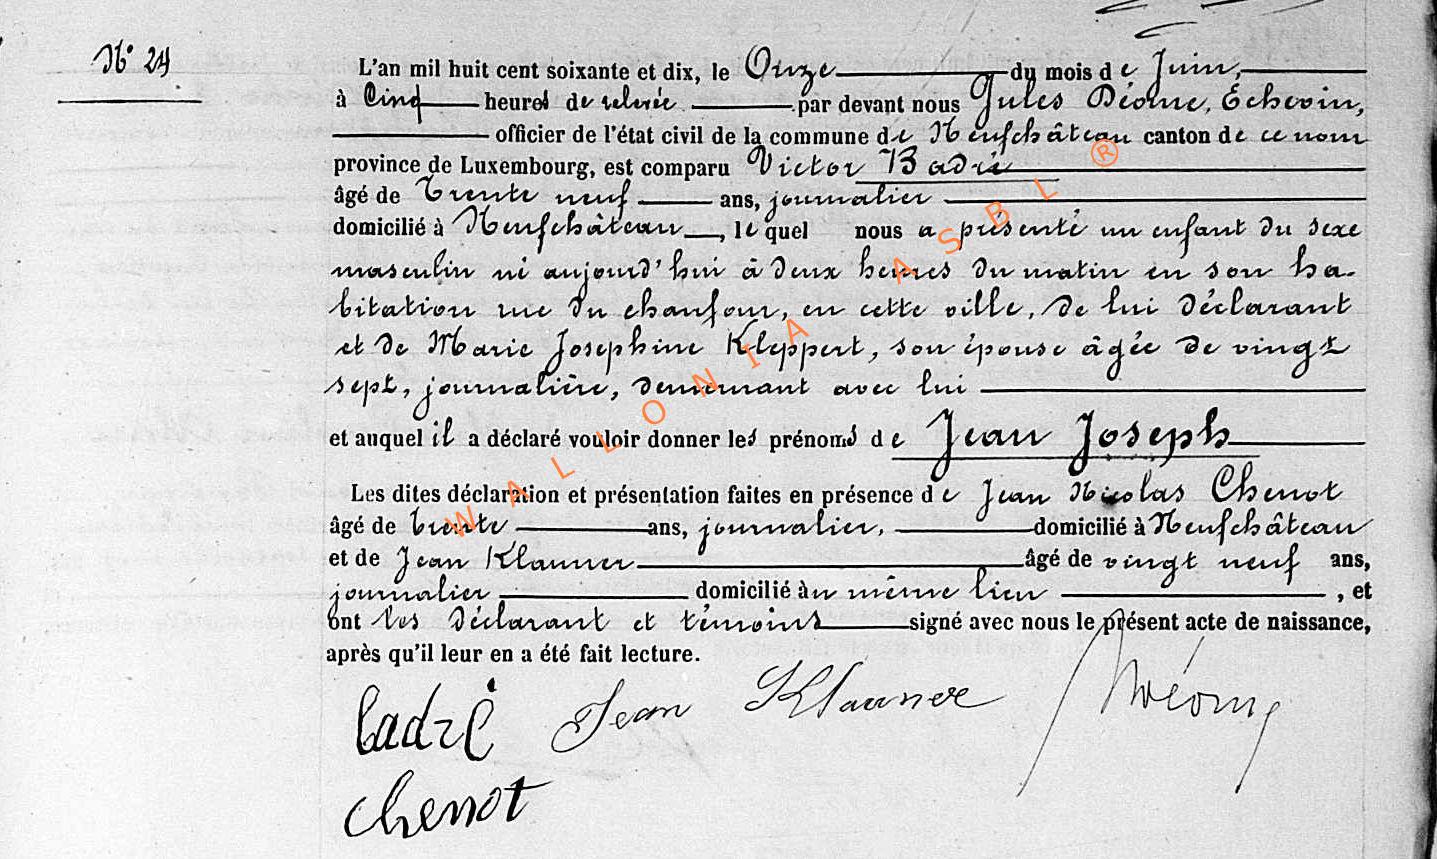 N° 24
L'an mil huit cent soixante et dix, le Onze du mois de Juin,
à Cinq heures de relevée par devant nous Jules Déome, Echevin,
officier de l'état civil de la commune de Neufchâteau canton de ce nom
province de Luxembourg, est comparu Victor Badré
âgé de Trente neuf ans, journalier
domicilié à Neufchâteau, lequel nous a présenté un enfant du sexe
masculin né aujourd'hui à deux heures du matin en son ha-
bitation rue du chaufour, en cette ville, de lui déclarant
et de Marie Josephine Kleppert, son épouse âgée de vingt
sept, journalière, demeurant avec lui
et auquel il a déclaré vouloir donner les prénoms de Jean Joseph
Les dites déclaration et présentation faites en présence de Jean Nicolas Chenot
âgé de trente ans, journalier, domicilié à Neufchâteau
et de Jean Klauner âgé de vingt neuf ans,
journalier domicilié au même lieu , et
ont les déclarant et témoins signé avec nous le présent acte de naissance,
après qu'il leur en a été fait lecture.
badré Jean Klauner Déome
chenot
WALLONIA ASBL ®